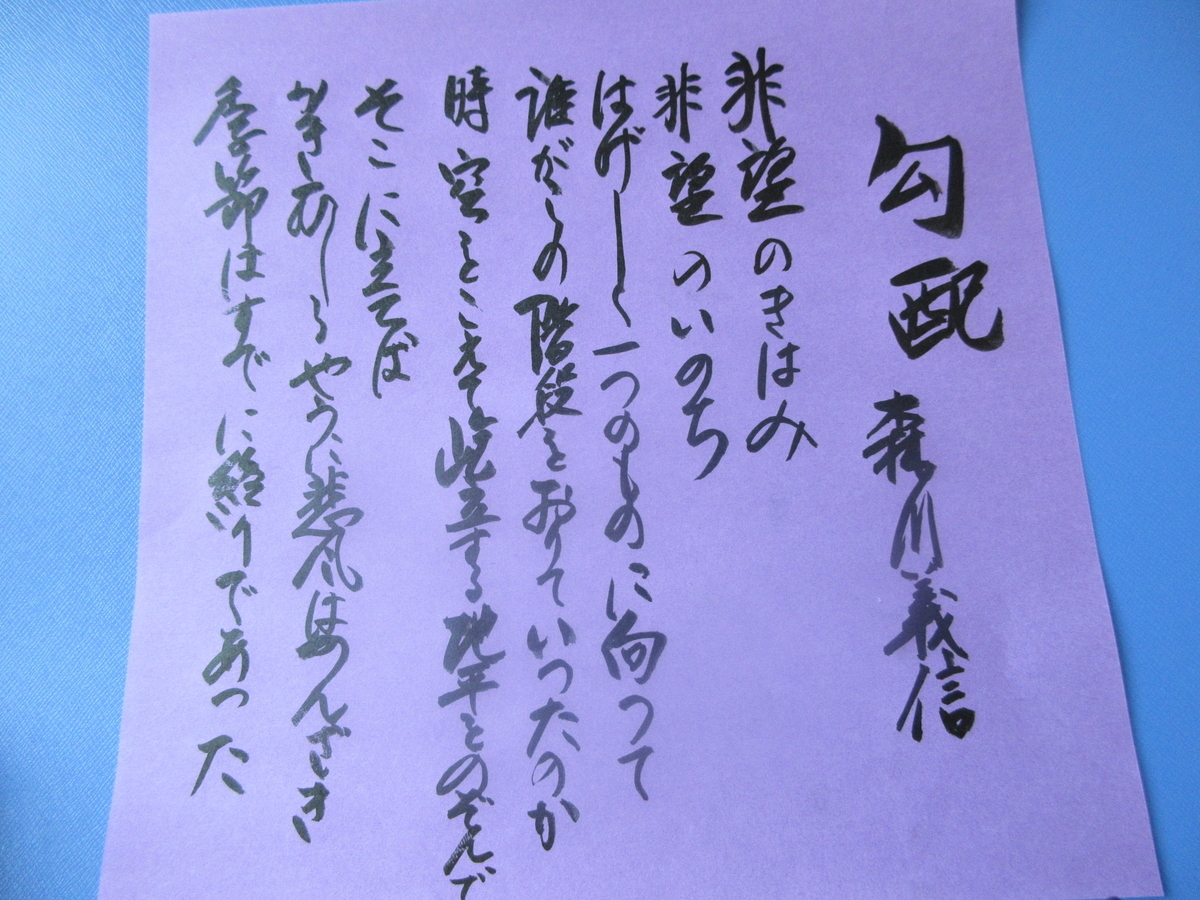 勾配 森川義信
非望のきはみ
非望のいのち
はげしく一つのものに向つて
誰がこの階段をおりていつたのか
時空をこえて屹立する地平をのぞんで
そこに立てば
かきむしるやうに悲風はつんざき
季節はすでに終りであつた